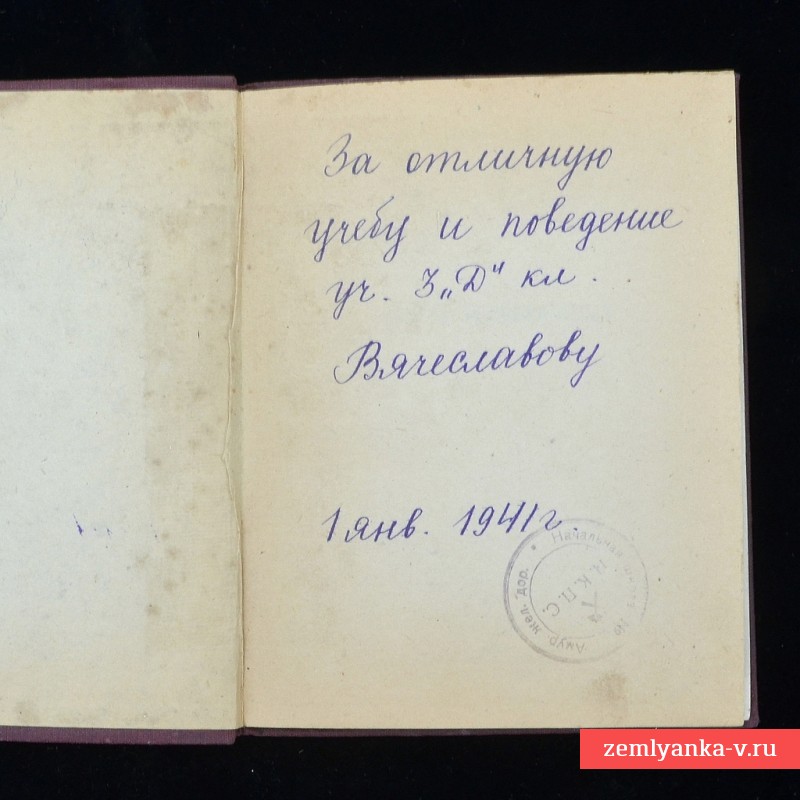 За отличную
учебу и поведение
уч. 3 „Д" кл.
Вячеславову
1 янв. 1941 г.
Начальная
Н.К.П.С.
Амур. жел. дор.
zemlyanka-v.ru